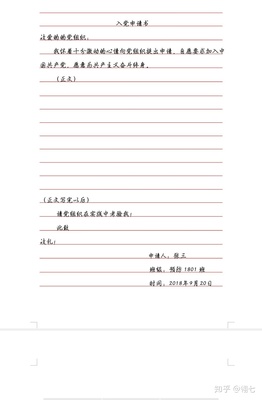 入党申请书
敬爱的党组织：
我怀着十分激动的心情向党组织提出申请，自愿要求加入中
国共产党，愿意为共产主义奋斗终身。
（正文）
（正文写完以后）
请党组织在实践中考验我！
此致
敬礼！
申请人：张三
班级：预防 1801 班
时间：2018年9月20日
知乎 @诸七